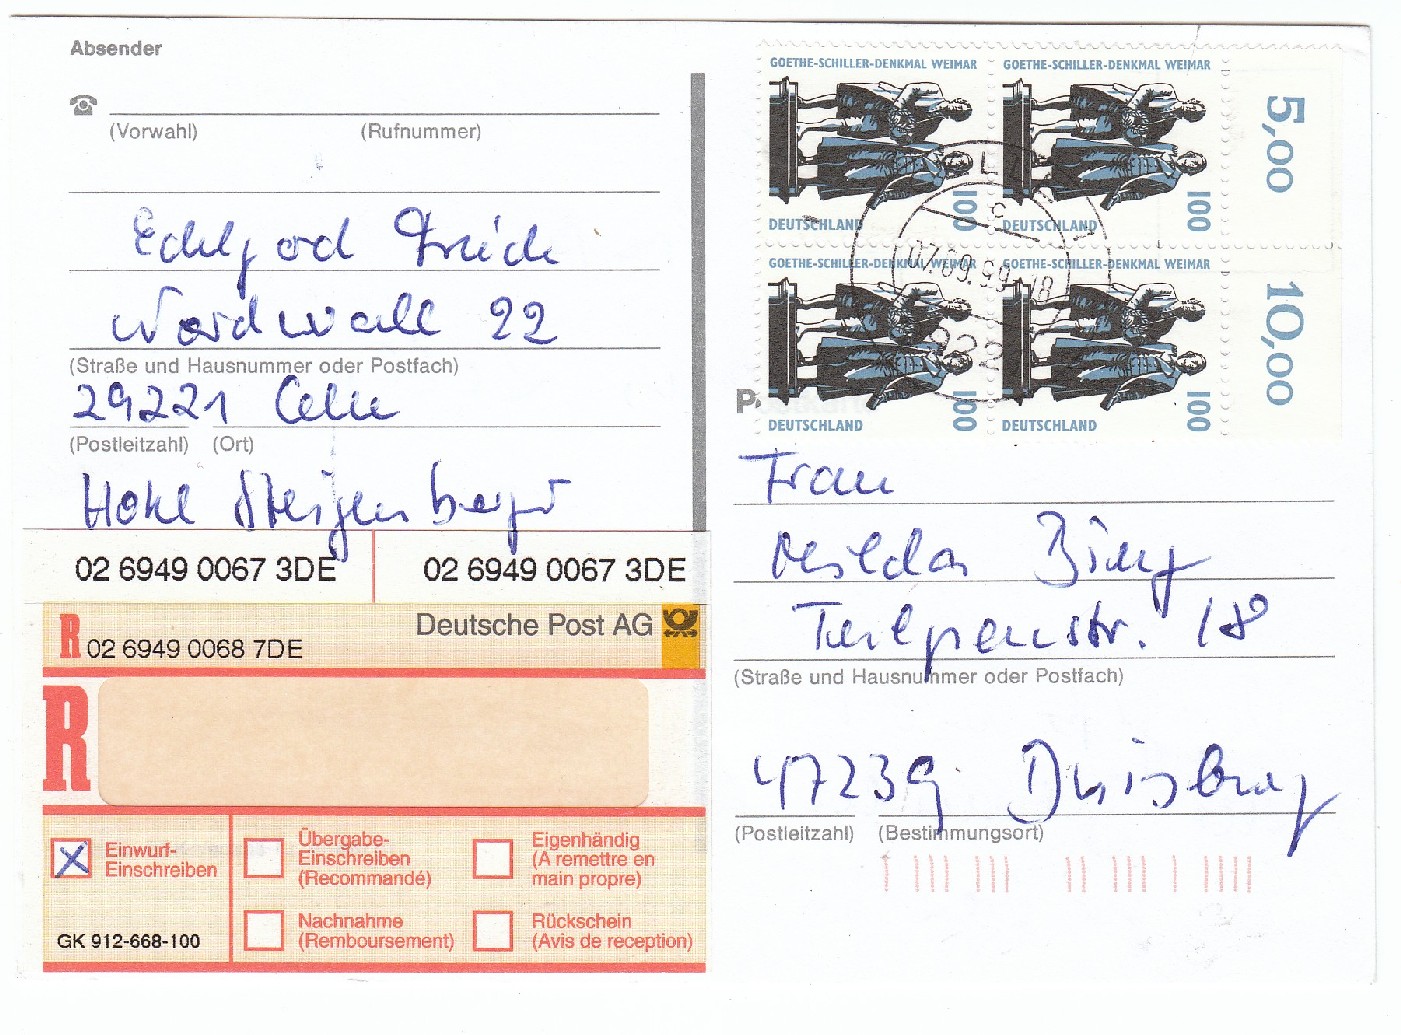 Absender
(Vorwahl) (Rufnummer)
Nordwall 22
(Straße und Hausnummer oder Postfach)
29221 Celle
(Postleitzahl) (Ort)
Hotel Steigenberger
02 6949 0067 3DE 02 6949 0067 3DE
Deutsche Post AG
R 02 6949 0068 7DE
R
Einwurf-
Einschreiben
GK 912-668-100
Übergabe-
Einschreiben
(Recommandé)
Eigenhändig
(A remettre en
main propre)
Nachnahme
(Remboursement)
Rückschein
(Avis de reception)
GOETHE-SCHILLER-DENKMAL WEIMAR
100
DEUTSCHLAND
GOETHE-SCHILLER-DENKMAL WEIMAR
100
DEUTSCHLAND
5,00
GOETHE-SCHILLER-DENKMAL WEIMAR
100
DEUTSCHLAND
GOETHE-SCHILLER-DENKMAL WEIMAR
100
DEUTSCHLAND
10,00
07.09.99-18
c
Frau
18
(Straße und Hausnummer oder Postfach)
47239 Duisburg
(Postleitzahl) (Bestimmungsort)